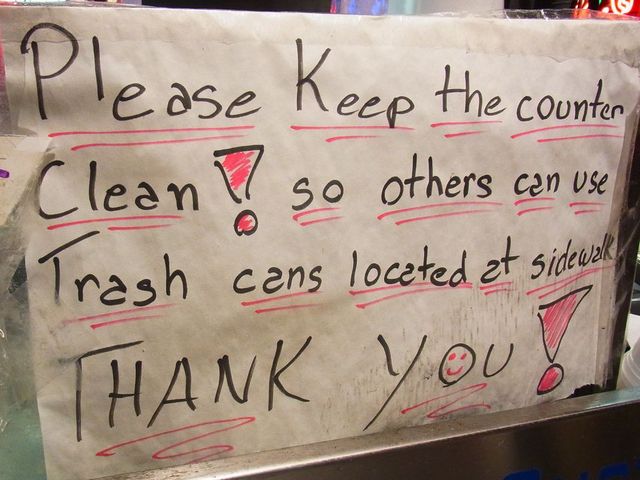 Please Keep the counter
Clean! so others can use
Trash cans located at sidewalk
THANK YOU!